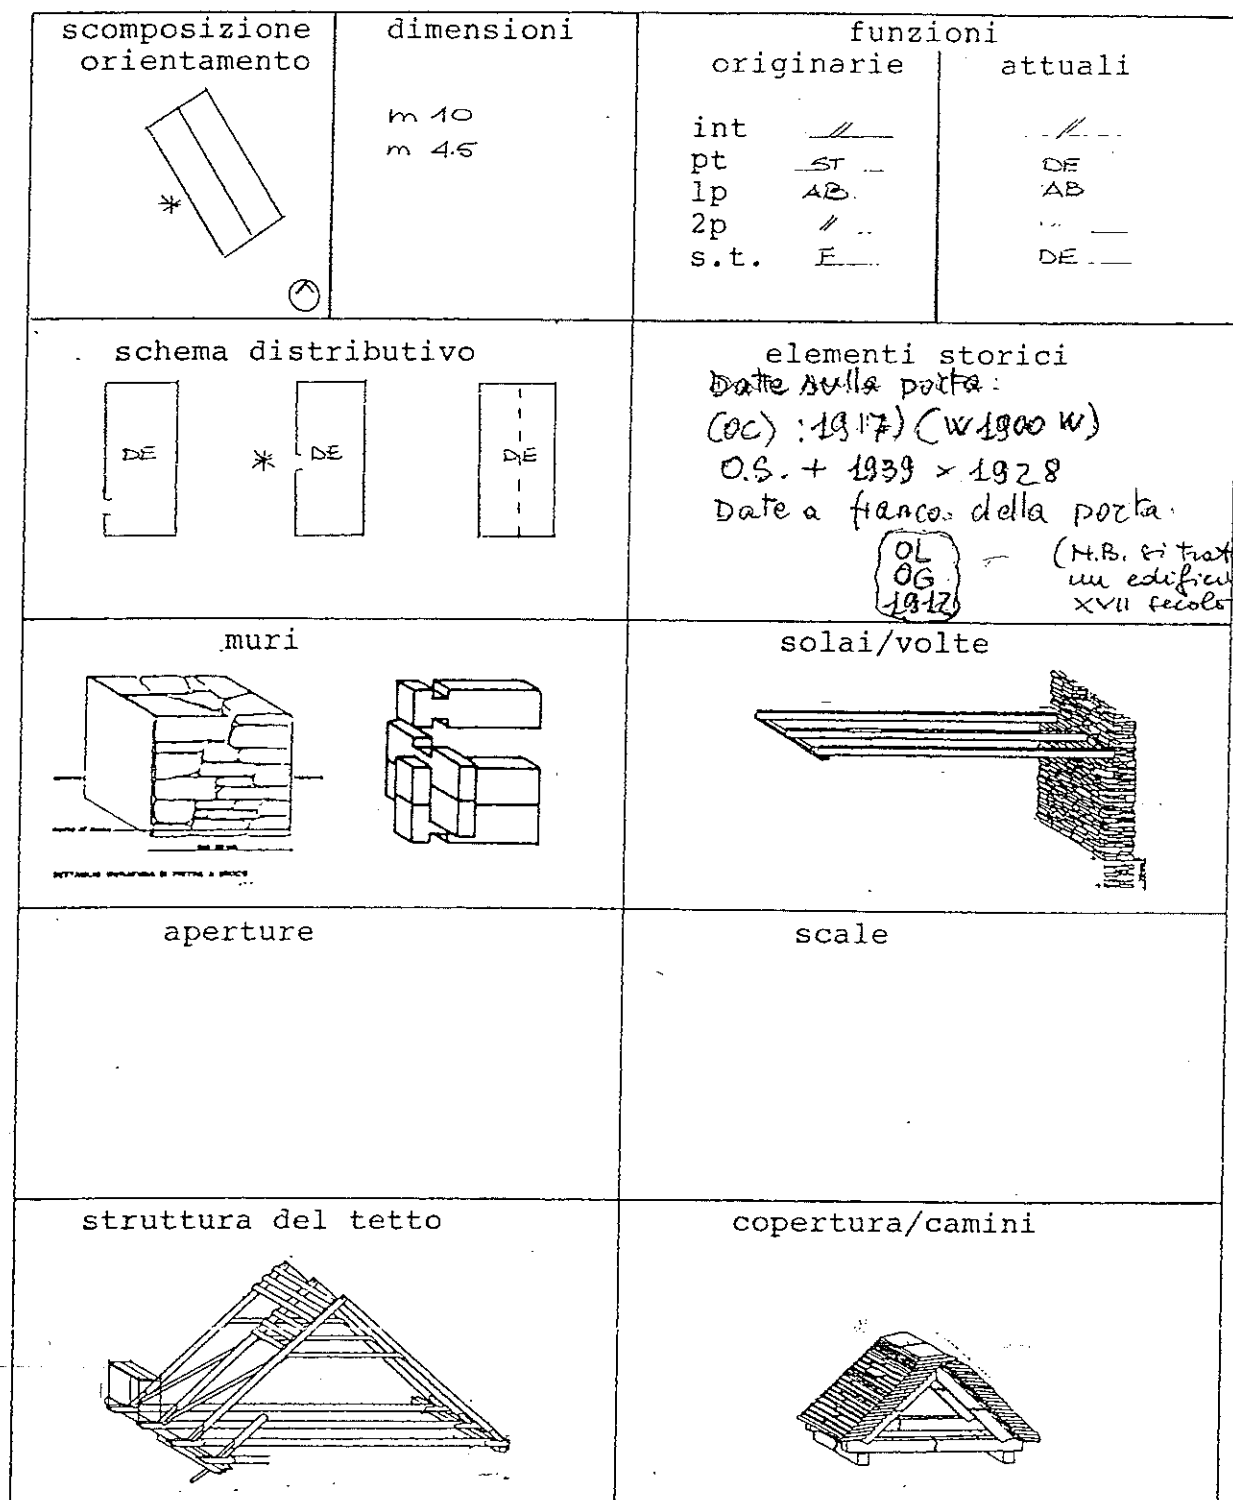 scomposizione
orientamento
dimensioni
m 10
m 4.5
funzioni
originarie attuali
int // //
pt ST DE
1p AB. AB
2p //
s.t. F DE
schema distributivo
DE
* DE
DE
elementi storici
Date sulla porta:
(OC) :1917) (W1900 W)
O.S. + 1939 × 1928
Date a fianco della porta.
OL
OG
1912
(N.B. si trat
un edificio
XVII secolo
muri
solai/volte
aperture
scale
struttura del tetto
copertura/camini